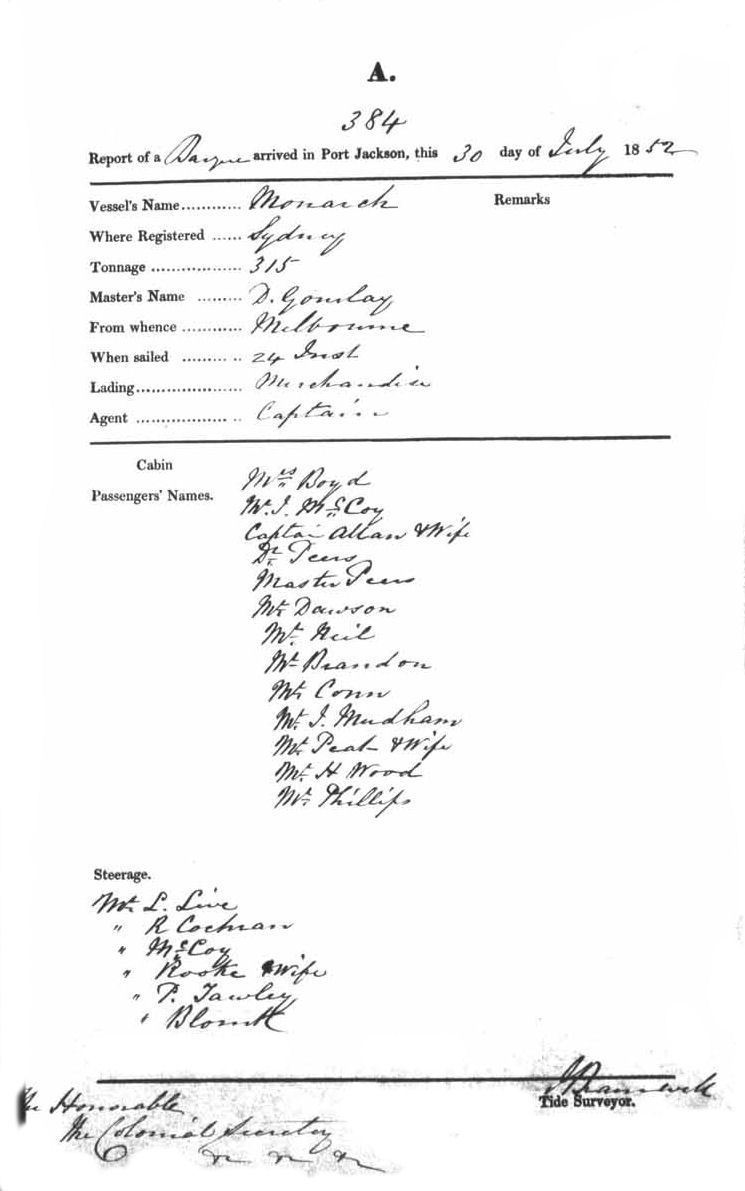 A.
384
Report of a Barque arrived in Port Jackson, this 30 day of July 1852
Vessel's Name............ Monarch
Remarks
Where Registered ...... Sydney
Tonnage .................. 315
Master's Name ......... D. Gourlay
From whence ............ Melbourne
When sailed ......... .. 24 Inst
Lading..................... Merchandise
Agent .................. .. Captain
Cabin
Passengers' Names.
Mrs Boyd
Mr. J. McCoy
Captain Allan & Wife
Dr Peers
Master Peers
Mr Dawson
Mr. Neil
Mr Brandon
Mr Conn
Mr. J. Mudham
Mr Peat & Wife
Mr. H Wood
Mr. Phillips
Steerage.
Mr L. Live
" R Cochran
" McCoy
" Rooke & Wife
" P. Tawley
" Blomit
Tide Surveyor.
The Honorable
The Colonial Secretary